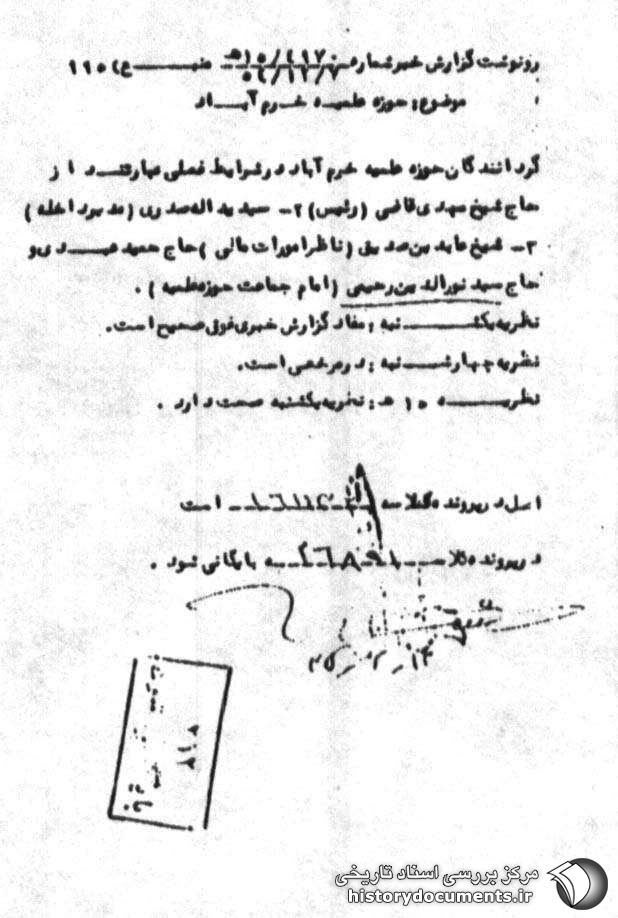 رونوشت گزارش خبر شماره
موضوع: حوزه علمیه خرم آباد
گردانندگان حوزه علمیه خرم آباد در شرایط فعلی عبارتند از
حاج شیخ مهدی قاضی (رئیس) ۲- سید یداله صدری (مدیر داخله)
۳- شیخ عابدین صدیقی (ناظر امورات مالی) حاج حمید عبدی و
حاج سید نورالدین رحیمی (امام جماعت حوزه علمیه).
نظریه یکشنبه: مفاد گزارش خبری فوق صحیح است.
نظریه چهارشنبه: در مرخصی است.
نظریه ۱۵ ه: نظریه یکشنبه صحت دارد.
اصل در پرونده کلاسه است
در پرونده کلاسه بایگانی شود.
مرکز بررسی اسناد تاریخی
historydocuments.ir